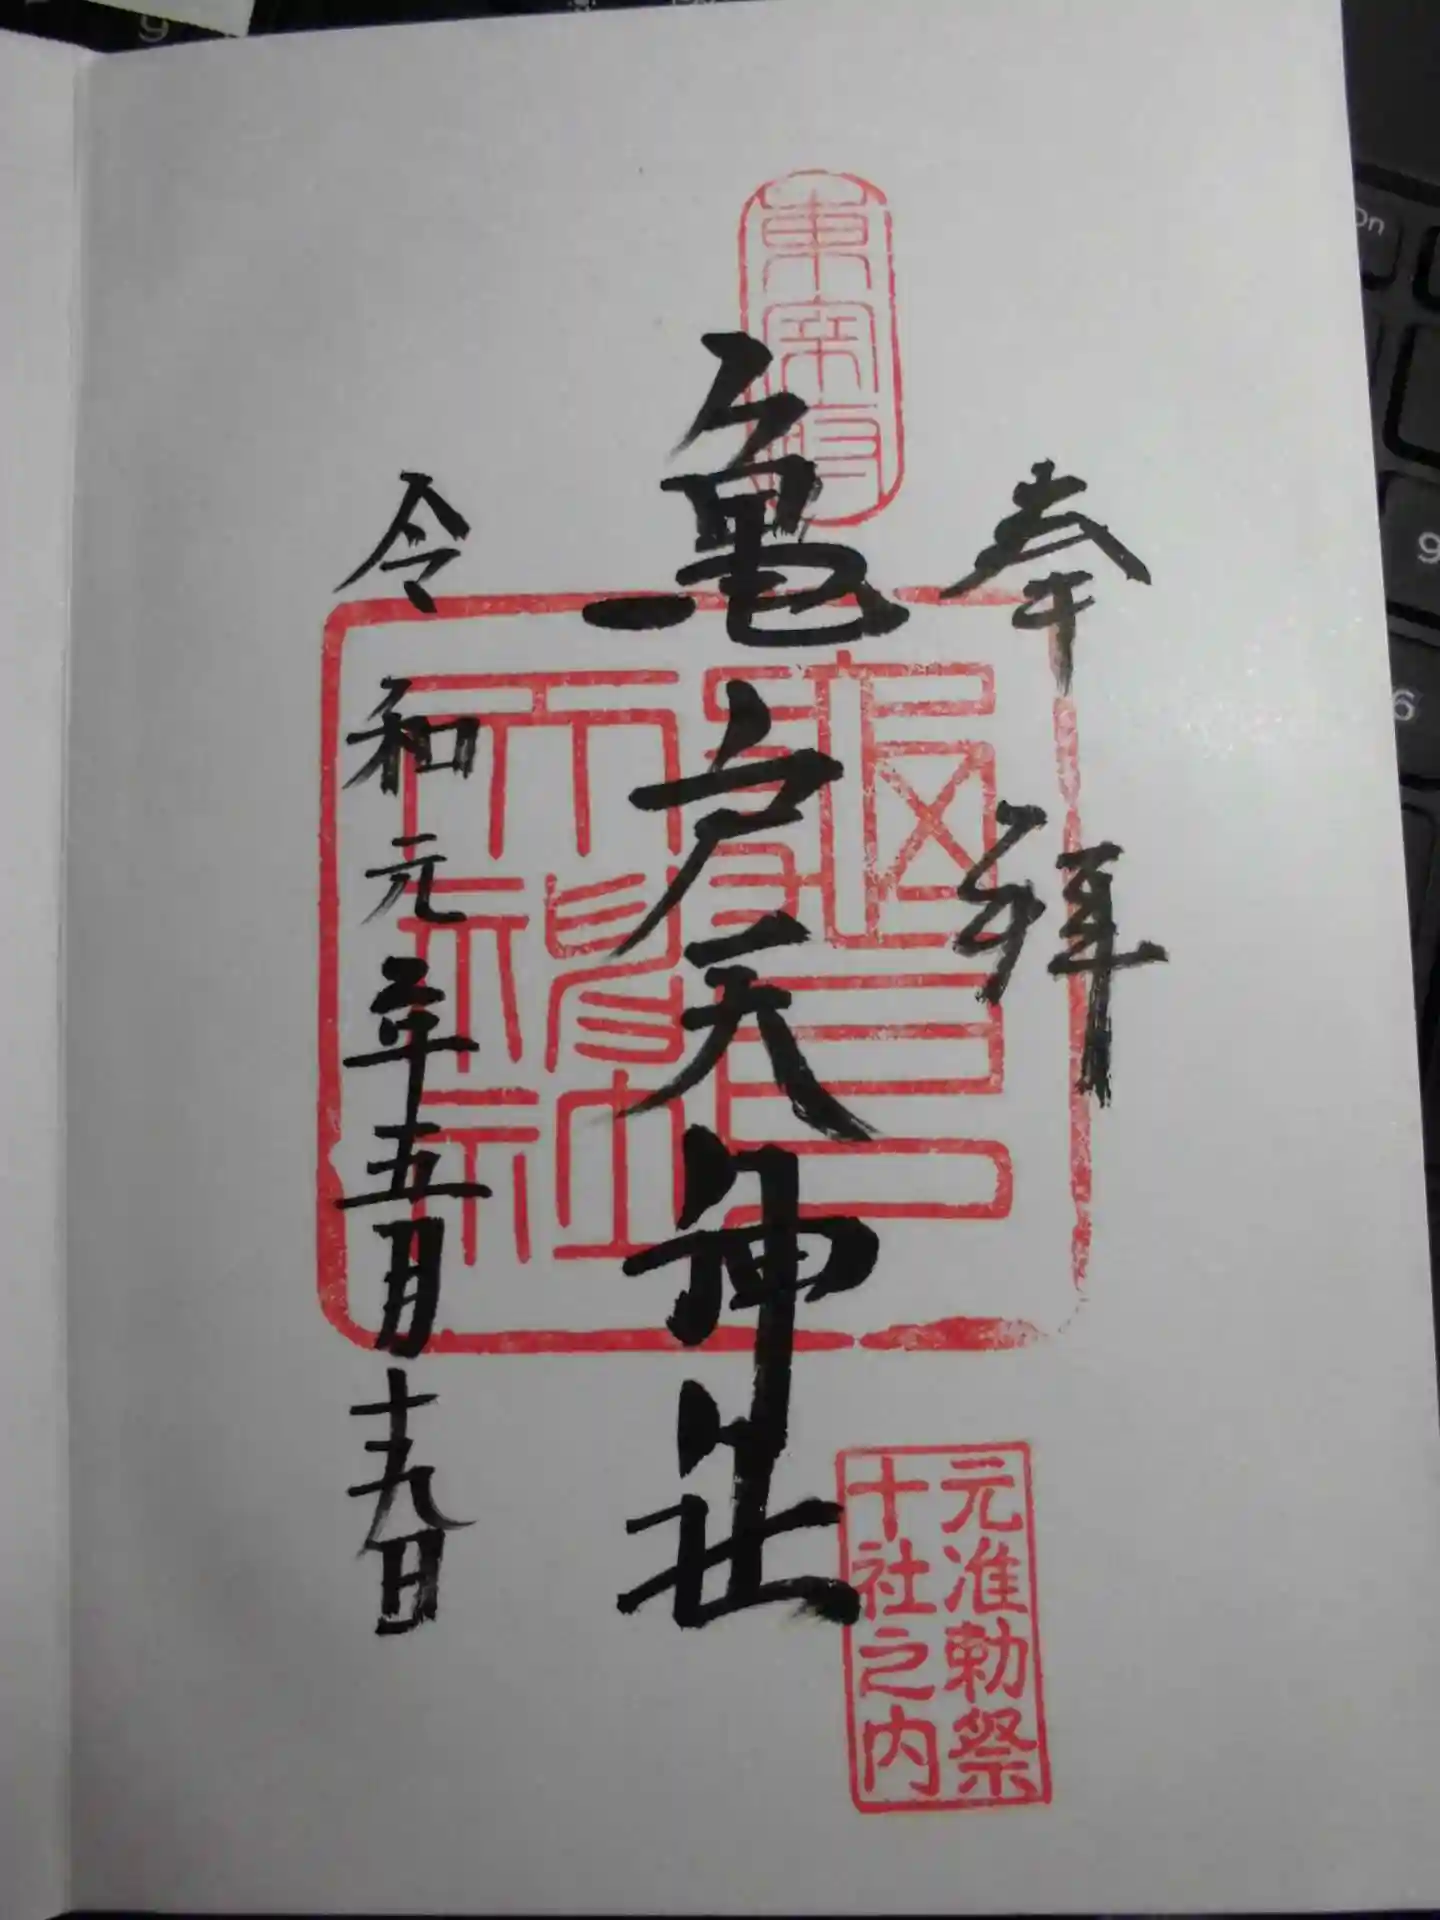 奉拝
東宰府
亀戸天神社
元准勅祭
十社之内
令和元年五月十九日